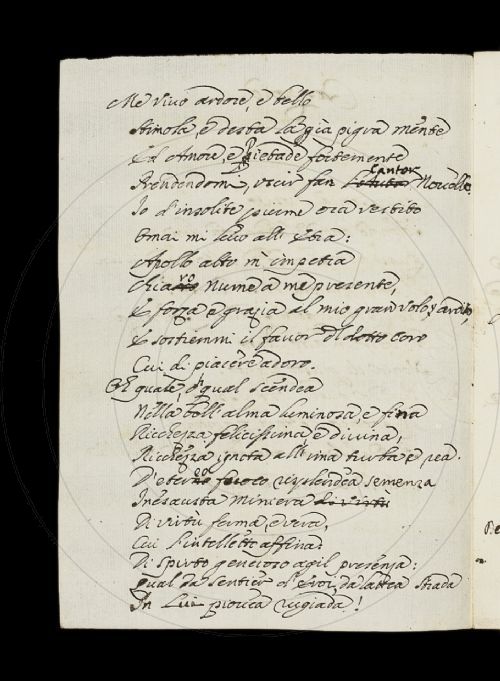 Me vivo ardore, e bello
Stimola, e desta la già pigra mente
Ed Amore, e Pietade fortemente
Prendendomi, uscir fan Cantor Novello.
Io d'insolite piume ora vestito
Omai mi levo all' Etra:
Apollo alto m' impetra
Chiaro Nume a me presente,
E forza e grazia al mio gran volo, ardito,
E sostienmi il favor del dotto coro
Cui di piacere adoro.
E quale, o qual scendea
Nella bell' alma luminosa, e fina
Ricchezza felicissima, e divina,
Ricchezza ignota all' ima turba e rea.
D' eterno risplendea semenza
Inesausta miniera di virtù
Di virtù ferma, e vera,
Cui l' intelletto affina:
Di Spirto generoso agil presenza:
Qual da sentier d' Eroi, da lattea strada
In Lui piovea rugiada!